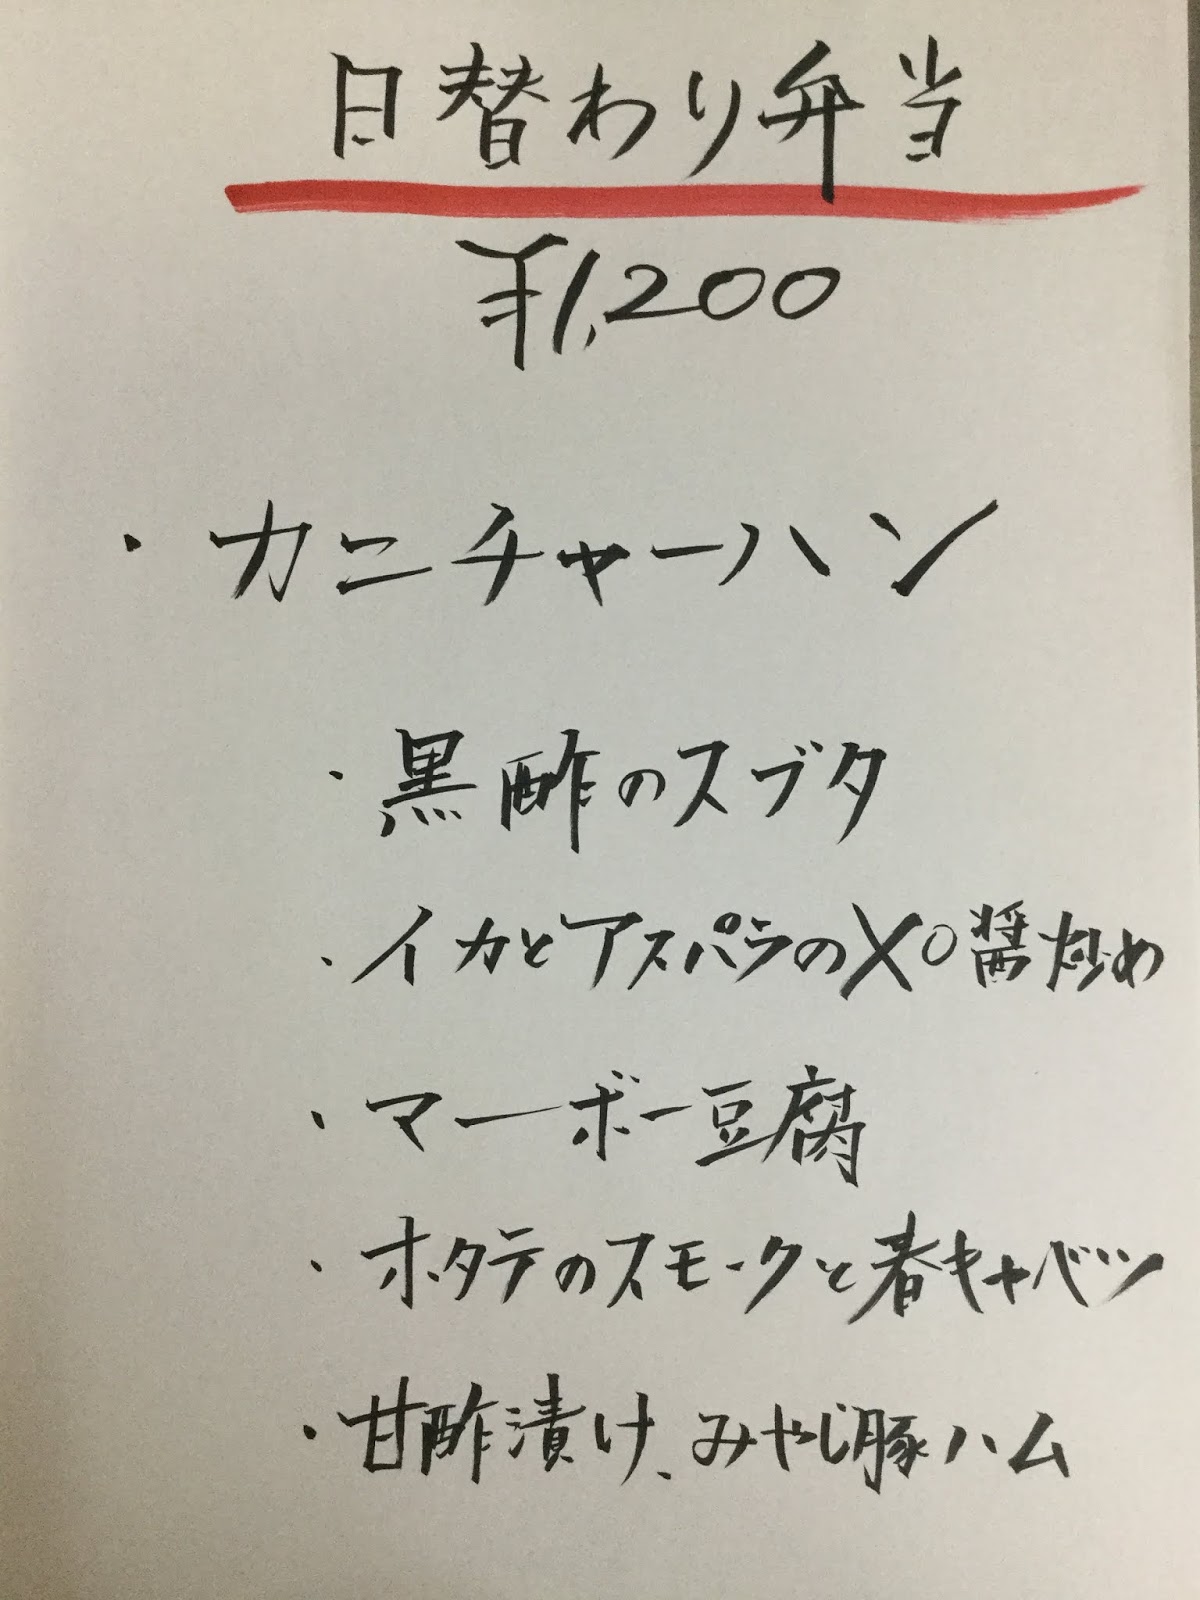 日替わり弁当
¥1,200
・カニチャーハン
・黒酢のスブタ
・イカとアスパラのXO醤炒め
・マーボー豆腐
・ホタテのスモークと春キャベツ
・甘酢漬け、みやじ豚ハム